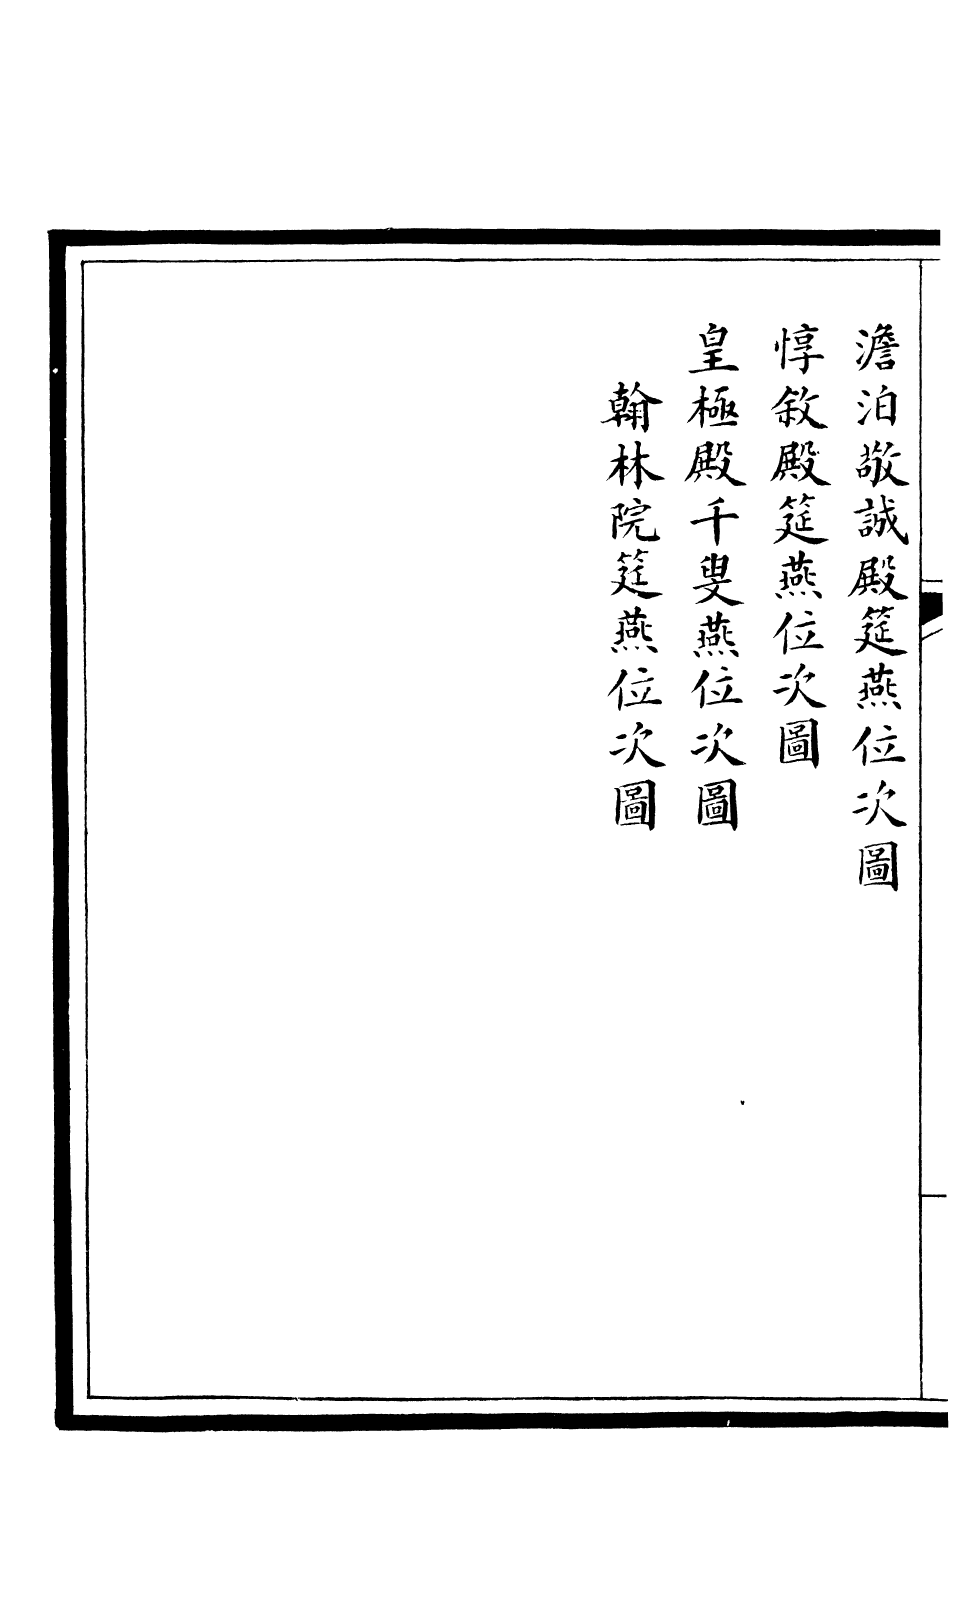 澹泊敬誠殿筵燕位次圖
惇敘殿筵燕位次圖
皇極殿千叟燕位次圖
翰林院筵燕位次圖